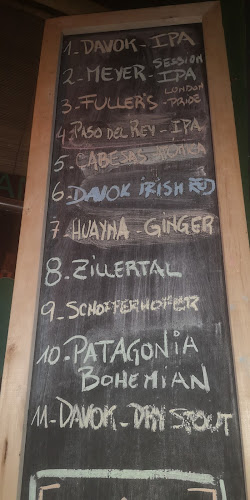 1- DAVOK - IPA
2- MEYER - SESSION IPA
3- FULLER'S - LONDON PRIDE
4- PASO DEL REY - IPA
5- CABESAS
6- DAVOK IRISH RED
7- HUAYNA - GINGER
8- ZILLERTAL
9- SCHOFFERHOFER
10- PATAGONIA
BOHEMIAN
11- DAVOK - DRY STOUT